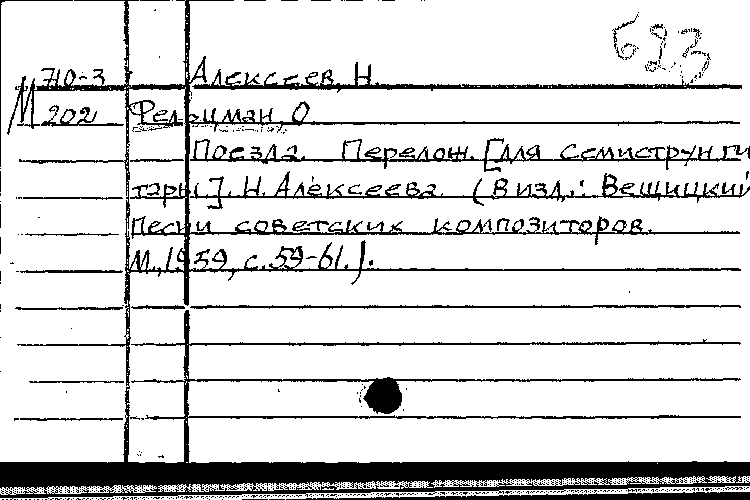 623
710-3 Алексеев, Н.
М 202 Фельцман, О.
Поезда. Перелож. [для семиструн. ги
тары]. Н. Алексеева. (В изд.: Вещицкий
Песни советских композиторов.
М., 1959, с. 59-61.).